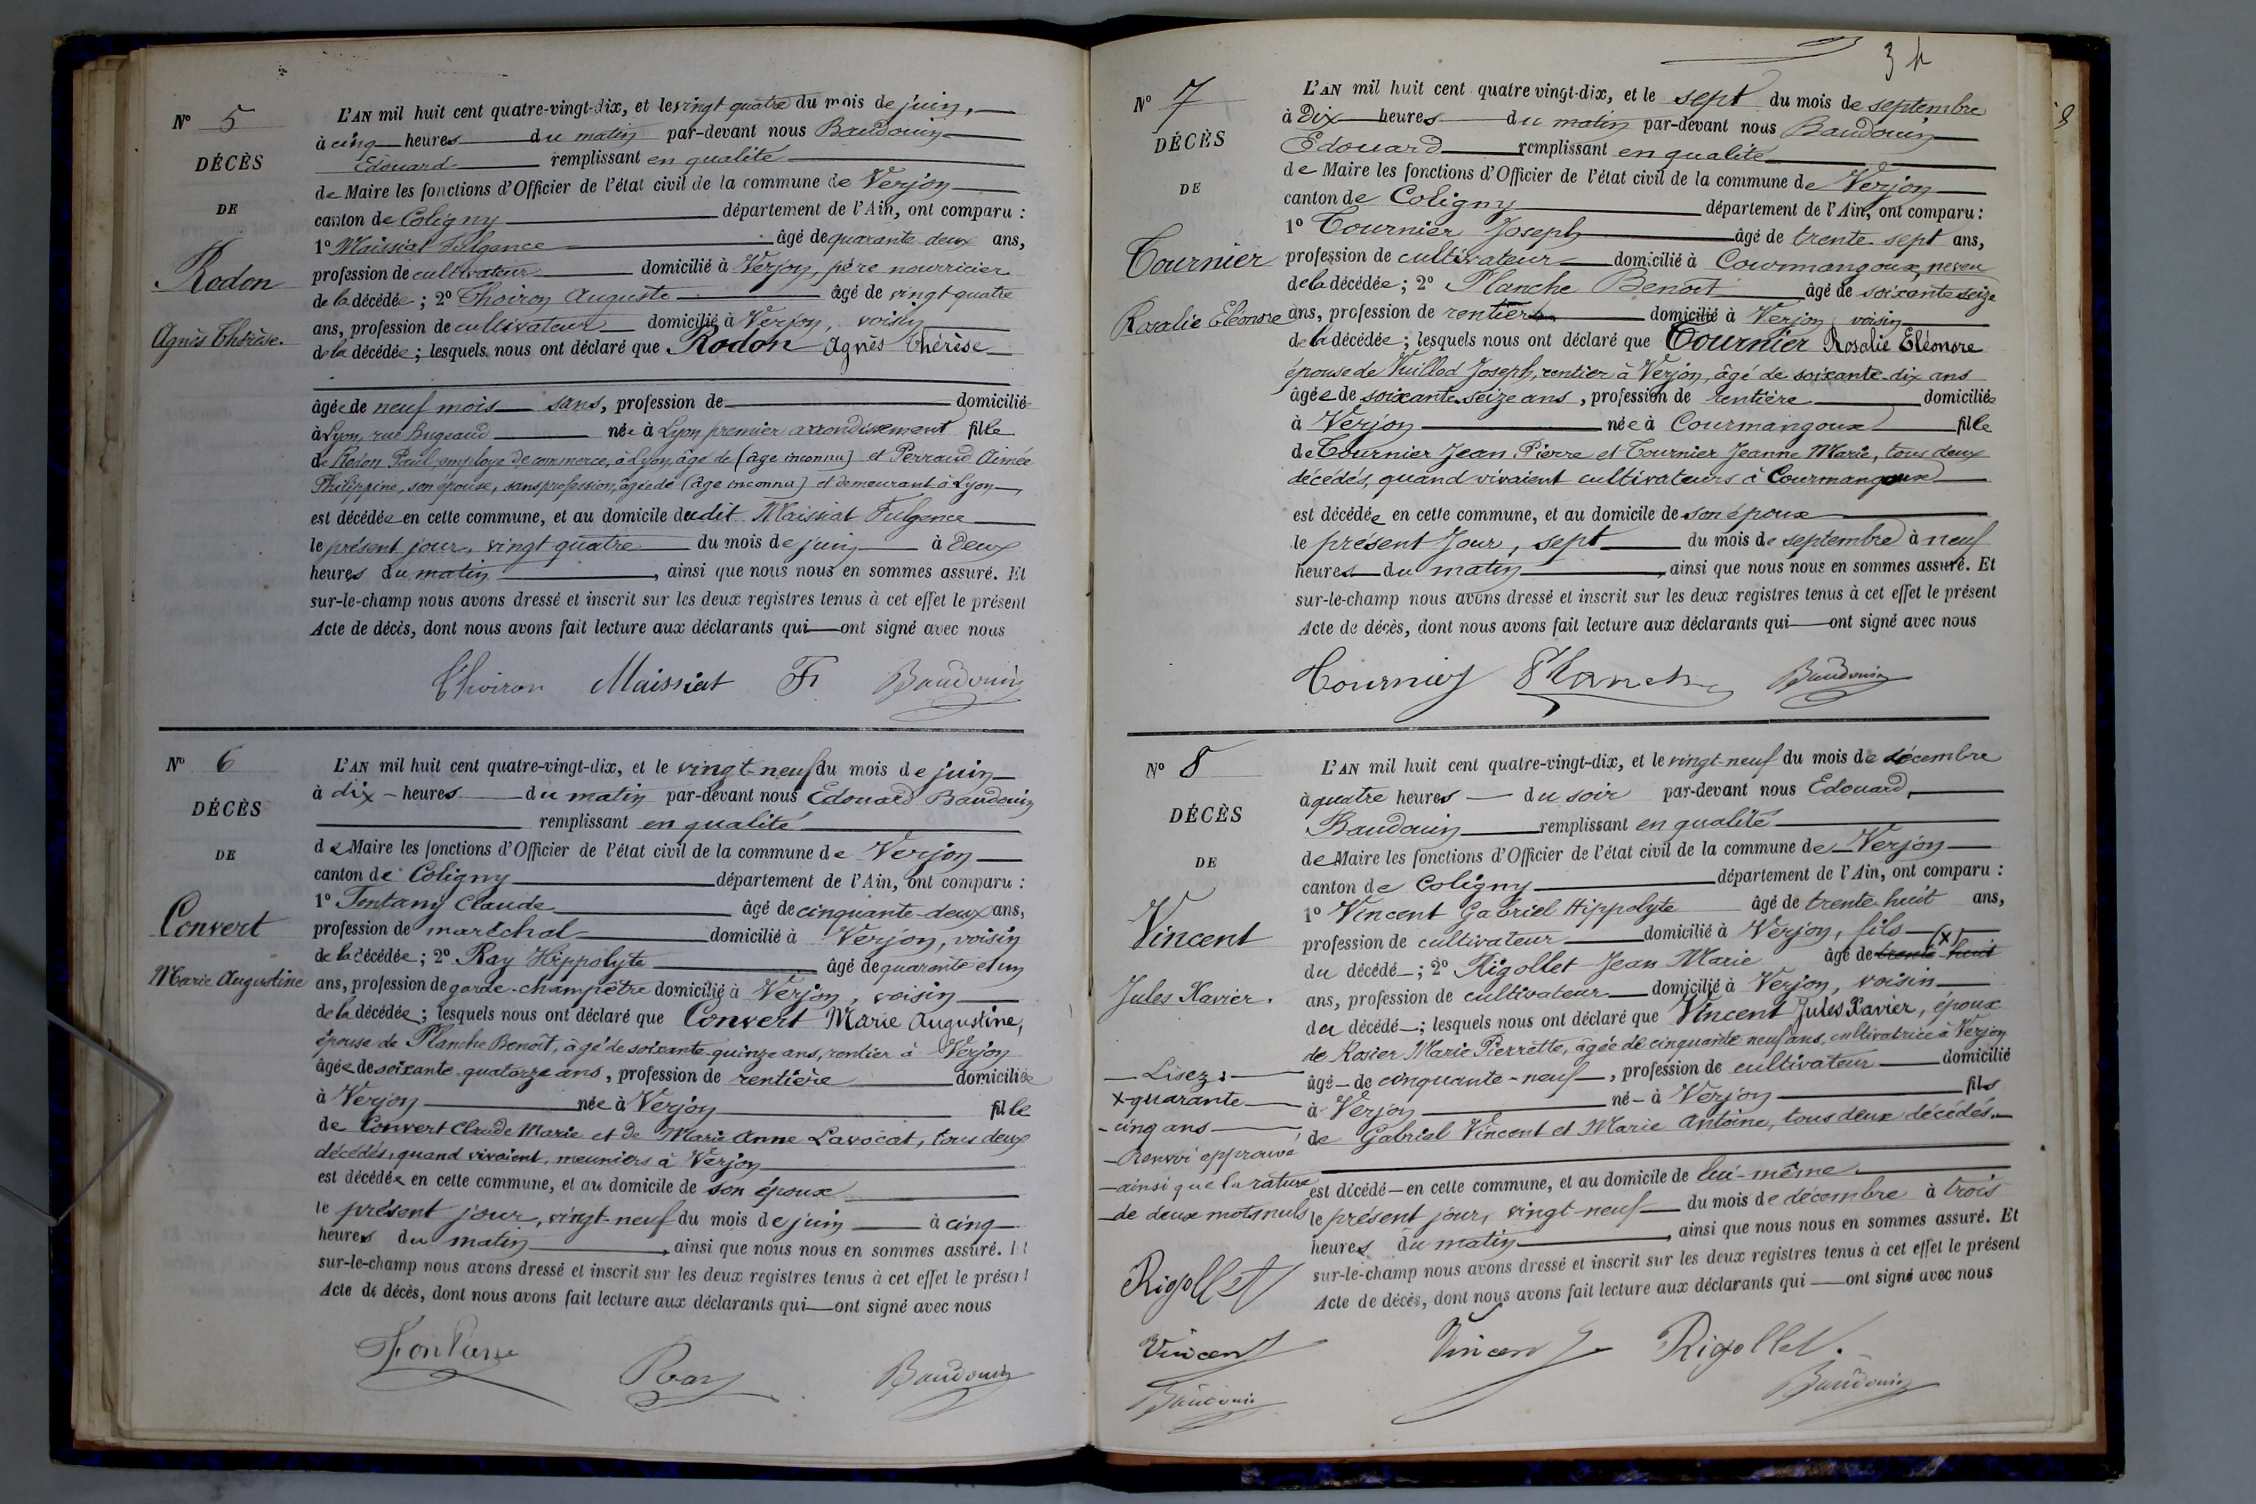 N° 5
DÉCÈS
DE
Rodon
Agnès Thérèse.
L'AN mil huit cent quatre-vingt-dix, et le vingt quatre du mois de juin,
à cinq heures du matin par-devant nous Baudouin
Edouard remplissant en qualité
de Maire les fonctions d'Officier de l'état civil de la commune de Verjon
canton de Coligny département de l'Ain, ont comparu :
1° Maissiat Fulgence âgé de quarante deux ans,
profession de cultivateur domicilié à Verjon, père nourricier
de la décédée ; 2° Thoiron Auguste âgé de vingt quatre
ans, profession de cultivateur domicilié à Verjon, voisin
de la décédée ; lesquels nous ont déclaré que Rodon Agnès Thérèse
âgée de neuf mois sans, profession de domicilié
à Lyon, rue Bugeaud née à Lyon premier arrondissement fille
de Rodon Paul, employé de commerce, à Lyon, âgé de (âge inconnu) et Perraud Aimée
Philippine, son épouse, sans profession, âgée de (âge inconnu) et demeurant à Lyon
est décédée en cette commune, et au domicile dudit Maissiat Fulgence
le présent jour, vingt quatre du mois de juin à deux
heures du matin, ainsi que nous nous en sommes assuré. Et
sur-le-champ nous avons dressé et inscrit sur les deux registres tenus à cet effet le présent
Acte de décès, dont nous avons fait lecture aux déclarants qui ont signé avec nous
Thoiron Maissiat F. Baudouin
N° 6
DÉCÈS
DE
Convert
Marie Augustine
L'AN mil huit cent quatre-vingt-dix, et le vingt-neuf du mois de juin
à dix heures du matin par-devant nous Edouard Baudouin
remplissant en qualité
de Maire les fonctions d'Officier de l'état civil de la commune de Verjon
canton de Coligny département de l'Ain, ont comparu :
1° Fontany Claude âgé de cinquante-deux ans,
profession de maréchal domicilié à Verjon, voisin
de la décédée ; 2° Ray Hippolyte âgé de quarante et un
ans, profession de garde-champêtre domicilié à Verjon, voisin
de la décédée ; lesquels nous ont déclaré que Convert Marie Augustine,
épouse de Planche Benoît, âgé de soixante quinze ans, rentier à Verjon
âgée de soixante quatorze ans, profession de rentière domiciliée
à Verjon née à Verjon fille
de Convert Claude Marie et de Marie Anne Lavocat, tous deux
décédés, quand vivaient, meuniers à Verjon
est décédée en cette commune, et au domicile de son époux
le présent jour, vingt-neuf du mois de juin à cinq
heures du matin, ainsi que nous nous en sommes assuré. Et
sur-le-champ nous avons dressé et inscrit sur les deux registres tenus à cet effet le présent
Acte de décès, dont nous avons fait lecture aux déclarants qui ont signé avec nous
Ray Baudouin
34
N° 7
DÉCÈS
DE
Tournier
Rosalie Eléonore
L'AN mil huit cent quatre vingt-dix, et le sept du mois de septembre
à Dix heures du matin par-devant nous Baudouin
Edouard remplissant en qualité
de Maire les fonctions d'Officier de l'état civil de la commune de Verjon
canton de Coligny département de l'Ain, ont comparu :
1° Tournier Joseph âgé de trente-sept ans,
profession de cultivateur domicilié à Courmangoux, neveu
de la décédée ; 2° Planche Benoît âgé de soixante seize
ans, profession de rentier domicilié à Verjon, voisin
de la décédée ; lesquels nous ont déclaré que Tournier Rosalie Eléonore
épouse de Vuillod Joseph, rentier à Verjon, âgé de soixante-dix ans
âgée de soixante-seize ans, profession de rentière domiciliée
à Verjon née à Courmangoux fille
de Tournier Jean Pierre et Tournier Jeanne Marie, tous deux
décédés, quand vivaient cultivateurs à Courmangoux
est décédée en cette commune, et au domicile de son époux
le présent Jour, sept du mois de septembre à neuf
heures du matin, ainsi que nous nous en sommes assuré. Et
sur-le-champ nous avons dressé et inscrit sur les deux registres tenus à cet effet le présent
Acte de décès, dont nous avons fait lecture aux déclarants qui ont signé avec nous
Tournier Planche Baudouin
N° 8
DÉCÈS
DE
Vincent
Jules Xavier.
L'AN mil huit cent quatre-vingt-dix, et le vingt-neuf du mois de décembre
à quatre heures du soir par-devant nous Edouard,
Baudouin remplissant en qualité
de Maire les fonctions d'Officier de l'état civil de la commune de Verjon
canton de Coligny département de l'Ain, ont comparu :
1° Vincent Gabriel Hippolyte âgé de trente huit ans,
profession de cultivateur domicilié à Verjon, fils
du décédé ; 2° Rigollet Jean Marie âgé de trente huit (x)
ans, profession de cultivateur domicilié à Verjon, voisin
du décédé ; lesquels nous ont déclaré que Vincent Jules Xavier, époux
de Rosier Marie Pierrette, âgée de cinquante neuf ans, cultivatrice à Verjon
âgé de cinquante-neuf, profession de cultivateur domicilié
à Verjon né à Verjon fils
de Gabriel Vincent et Marie Antoine, tous deux décédés.
est décédé en cette commune, et au domicile de lui-même
le présent jour, vingt-neuf du mois de décembre à trois
heures du matin, ainsi que nous nous en sommes assuré. Et
sur-le-champ nous avons dressé et inscrit sur les deux registres tenus à cet effet le présent
Acte de décès, dont nous avons fait lecture aux déclarants qui ont signé avec nous
Lisez :
x quarante
cinq ans
Renvoi approuvé
ainsi que la rature
de deux mots nuls
Rigollet
Vincent
Baudouin
Vincent Rigollet.
Baudouin
8